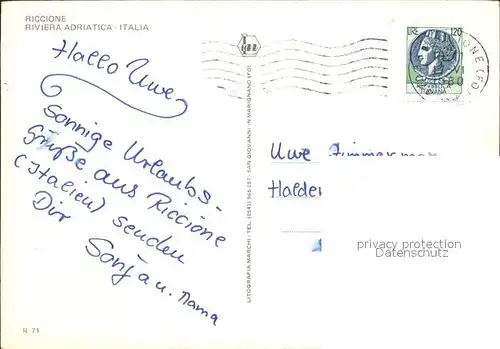 RICCIONE
RIVIERA ADRIATICA - ITALIA
Hallo Uwe
Sonnige Urlaubs-
grüße aus Riccione
(Italien) senden
Dir
Sonja u. Mama
R 71
LITOGRAFIA MARCHI - TEL. (0541) 966.187 - SAN GIOVANNI IN MARIGNANO (FO)
LIRE 120
Uwe Zimmerman
Halder
privacy protection
Datenschutz